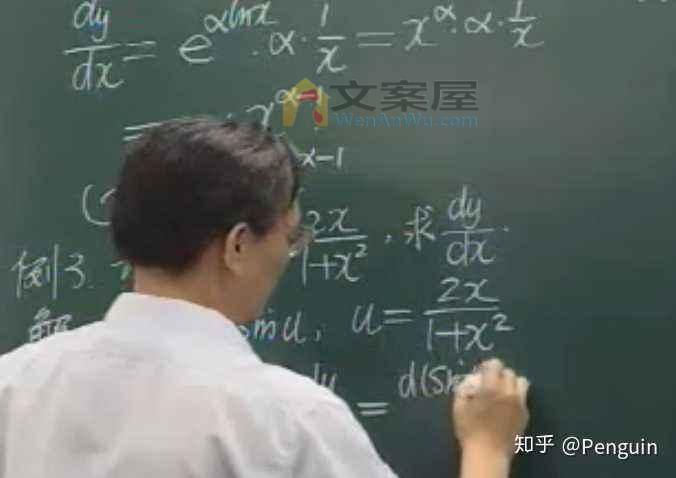 dy/dx = e^{αlnx}·α·1/x = x^α·α·1/x
= x^{α-1}
x-1
文案屋
WenAnWu.com
例3. 2x/1+x², 求 dy/dx.
解 sinu, u = 2x/1+x²
= d(sin
知乎 @Penguin